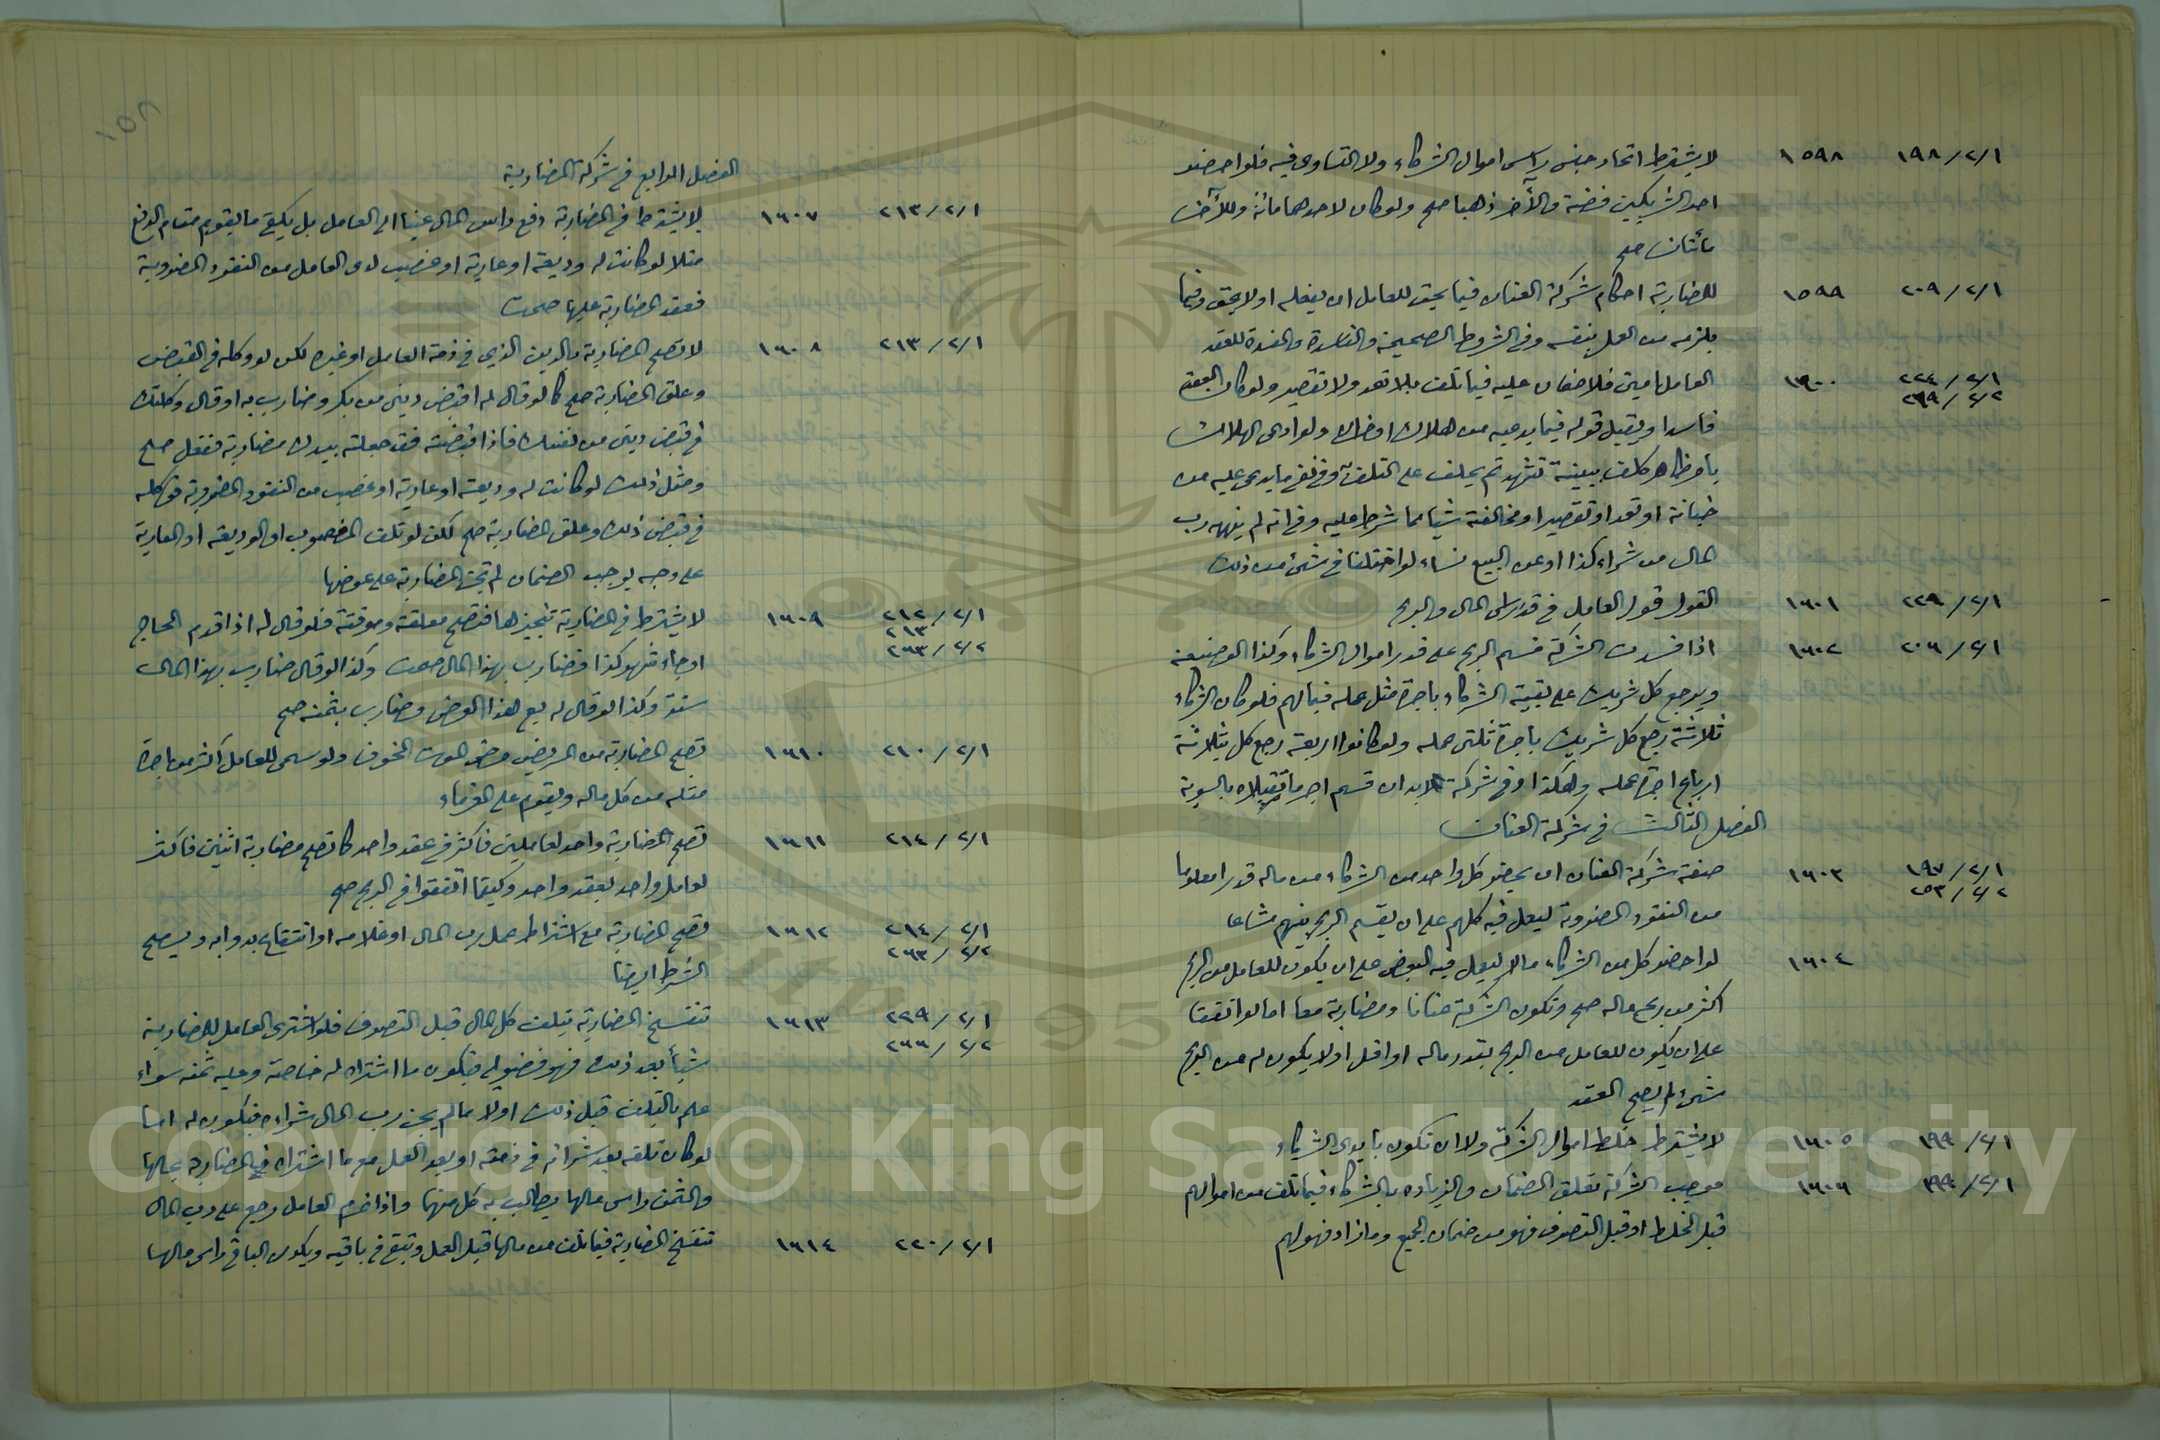 ١٩٨/٢/١ ١٥٩٨ لا يشترط اتحاد جنس راس اموال الشركاء ولا التساوي فيه فلو احضر
احد الشريكين فضة والآخر ذهبا صح ولو كان لاحدهما مائة وللآخر
مائتان صح
٢٠٩/٢/١ ١٥٩٩ للمضاربة احكام شركة العنان فيما يحق للعامل ان يفعله او لا يحق وفيما
يلزمه من العمل بنفسه وفي الشروط الصحيحة والفاسدة والمفسدة للعقد
٢٢٤/٢/١ ١٦٠٠ العامل امين فلا ضمان عليه فيما تلف بلا تعد ولا تقصير ولو كان العقد
٢٦٩/٢/٢
فاسدا ويقبل قوله فيما يدعيه من هلاك او خسران ولو ادعى الهلاك
بامر ظاهر كلف ببينة تشهد ثم يحلف على التلف وفي نفي ما يدعى عليه من
خيانة او تعد او تقصير او مخالفة شيئا مما شرط عليه وفي انه لم ينهه رب
المال من شراء كذا او عن البيع نساء لو اختلفا في شيء من ذلك
٢٢٩/٢/١ ١٦٠١ القول قول العامل في قدر راس المال والربح
٢٠٦/٢/١ ١٦٠٢ اذا فسدت الشركة قسم الربح على قدر اموال الشركاء وكذا الوضيعة
ويرجع كل شريك على بقية الشركاء باجرة مثل عمله فيما لهم فلو كان الشركاء
ثلاثة رجع كل شريك باجرة ثلثي عمله ولو كانوا اربعة رجع كل بثلاثة
ارباع اجرة عمله وهكذا وفي شركة الابدان قسم اجر ما تقبلاه بالسوية
الفصل الثالث في شركة العنان
١٩٧/٢/١ ١٦٠٣ صفة شركة العنان ان يحضر كل واحد من الشركاء من ماله قدرا معلوما
٢٥٣/٢/٢
من النقود المضروبة ليعمل فيه كلهم على ان يقسم الربح بينهم مشاعا
١٦٠٤ لو احضر كل من الشركاء مالا ليعمل فيه البعض على ان يكون للعامل من الربح
اكثر من ربح ماله صح وتكون الشركة عنانا ومضاربة معا اما لو اتفقا
على ان يكون للعامل من الربح بقدر ماله او اقل او لا يكون له من الربح
شيء لم يصح العقد
١٩٩/٢/١ ١٦٠٥ لا يشترط خلط اموال الشركة ولا ان تكون بايدي الشركاء
١٩٩/٢/١ ١٦٠٦ موجب الشركة تعلق الضمان والزيادة بالشركاء فيما تلف من اموالهم
قبل الخلط او قبل التصرف فهو من ضمان الجميع وما زاد فهو لهم
١٥٨
الفصل الرابع في شركة المضاربة
٢١٣/٢/١ ١٦٠٧ لا يشترط في المضاربة دفع راس المال عينا الى العامل بل يكفي ما يقوم مقام الدفع
مثلا لو كانت له وديعة او عارية او غصب لدى العامل من النقود المضروبة
فعقد المضاربة عليها صحت
٢١٣/٢/١ ١٦٠٨ لا تصح المضاربة بالدين الذي في ذمة العامل او غيره لكن لو وكله في القبض
وعلق المضاربة صح كما لو قال له اقبض ديني من بكر وضارب به او قال وكلتك
في قبض ديني من نفسك فاذا قبضته فقد جعلته بيدك مضاربة ففعل صح
ومثل ذلك لو كانت له وديعة او عارية او غصب من النقود المضروبة فوكله
في قبض ذلك وعلق المضاربة صح لكن لو تلف المغصوب او الوديعة او العارية
على وجه يوجب الضمان لم تجز المضاربة على عوضها
٢١٢/٢/١ ١٦٠٩ لا يشترط في المضاربة تنجيزها فتصح معلقة وموقتة فلو قال له اذا قدم الحاج
٢١٣
٢٦٣/٢/٢
او جاء شهر كذا فضارب بهذا المال صحت وكذا لو قال ضارب بهذا المال
سنة وكذا لو قال له بع هذا العرض وضارب بثمنه صح
٢١٠/٢/١ ١٦١٠ تصح المضاربة من المريض مرض الموت المخوف ولو سمى للعامل اكثر من اجرة
مثله من كل ماله ويقدم على الغرماء
٢١٤/٢/١ ١٦١١ تصح المضاربة واحد لعاملين فاكثر في عقد واحد كما تصح مضاربة اثنين فاكثر
لعامل واحد بعقد واحد وكيفما اتفقوا في الربح صح
٢١٤/٢/١ ١٦١٢ تصح المضاربة مع اشتراط عمل رب المال او غلامه او انتفاع بدوابه ويصح
٢٦٣/٢/٢
الشرط ايضا
٢٢٩/٢/١ ١٦١٣ تنفسخ المضاربة بتلف كل المال قبل التصرف فلو اشترى العامل للمضاربة
٢٦٦/٢/٢
شيئا بعد ذلك فهو فضولي فيكون ما اشتراه له خاصة وعليه ثمنه سواء
علم بالتلف قبل ذلك اولا ما لم يجز رب المال شراءه فيكون له اما
لو كان تلفه بعد شرائه في ذمته او بعد العمل مع ما اشتراه في المضاربة بحالها
والثمن راس مالها يطالب به كل منهما واذا غرم العامل رجع على رب المال
٢٢٠/٢/١ ١٦١٤ تنفسخ المضاربة فيما تلف من مالها قبل العمل وتبقى في باقيه ويكون الباقي راس مالها
Copyright © King Saud University